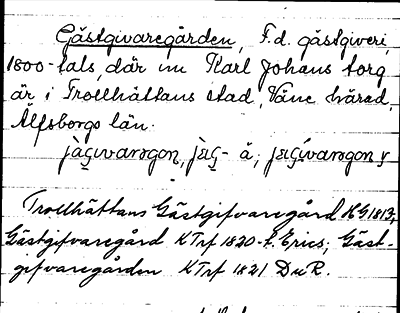 Gästgivaregården, F.d. gästgiveri,
1800-tals, där nu Karl Johans torg
är i Trollhättans stad, Väne härad,
Älfsborgs län.
Trollhättans Gästgifvaregård HG 1813;
Gästgifvaregård KTrf 1820 f. Erics; Gäst-
gifvaregården KTrf 1821 D:r R.